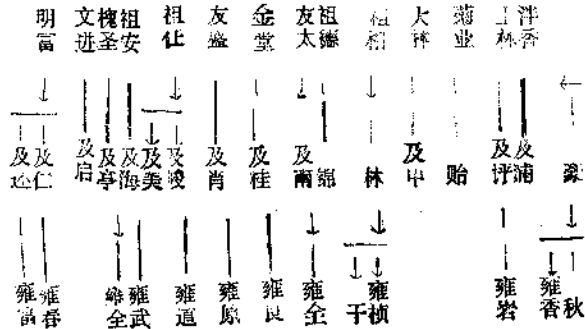 明富 文进 槐圣 祖安 祖仕 友盛 金堂 友太 祖德 祖相 大祥 菊业 士林 泮香
及仁 及启 及亭 及海 及美 及峻 及肖 及桂 及南 锦 林 及申 贻 及坪 及浦
雍富 雍春 雍全 雍武 雍道 雍原 雍良 雍金 于 雍桢 雍岩 雍香 秋